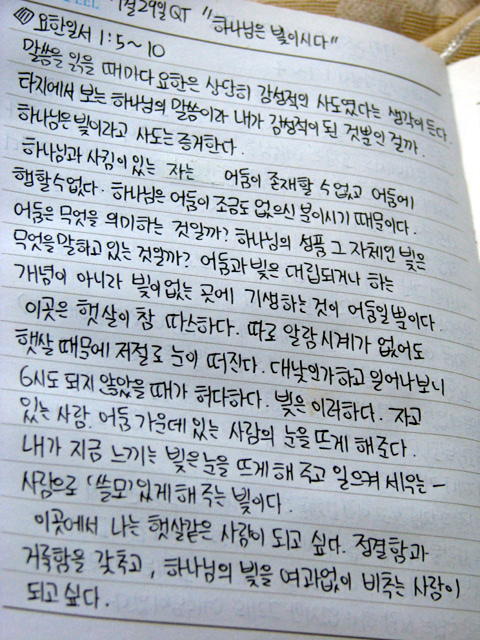 1월 29일 QT "하나님은 빛이시다"
요한일서 1:5~10
말씀을 읽을 때마다 요한은 상당히 감성적인 사도였다는 생각이 든다.
타지에서 보는 하나님의 말씀이라 내가 감성적이 된 것뿐인 걸까.
하나님은 빛이라고 사도는 증거한다.
하나님과 사귐이 있는 자는 어둠이 존재할 수 없고 어둠에
행할 수 없다. 하나님은 어둠이 조금도 없으신 분이시기 때문이다.
어둠은 무엇을 의미하는 것일까? 하나님의 성품 그 자체인 빛은
무엇을 말하고 있는 것일까? 어둠과 빛은 대립되거나 하는
개념이 아니라 빛이 없는 곳에 기생하는 것이 어둠일 뿐이다.
이곳은 햇살이 참 따스하다. 따로 알람시계가 없어도
햇살 때문에 저절로 눈이 떠진다. 대낮인가하고 일어나보니
6시도 되지 않았을 때가 허다하다. 빛은 이러하다. 자고
있는 사람, 어둠 가운데 있는 사람의 눈을 뜨게 해준다.
내가 지금 느끼는 빛은 눈을 뜨게 해 주고 일으켜 세우는 -
사람으로 '쓸모'있게 해 주는 빛이다.
이곳에서 나는 햇살같은 사람이 되고 싶다. 정결함과
거룩함을 갖추고, 하나님의 빛을 여과없이 비추는 사람이
되고 싶다.